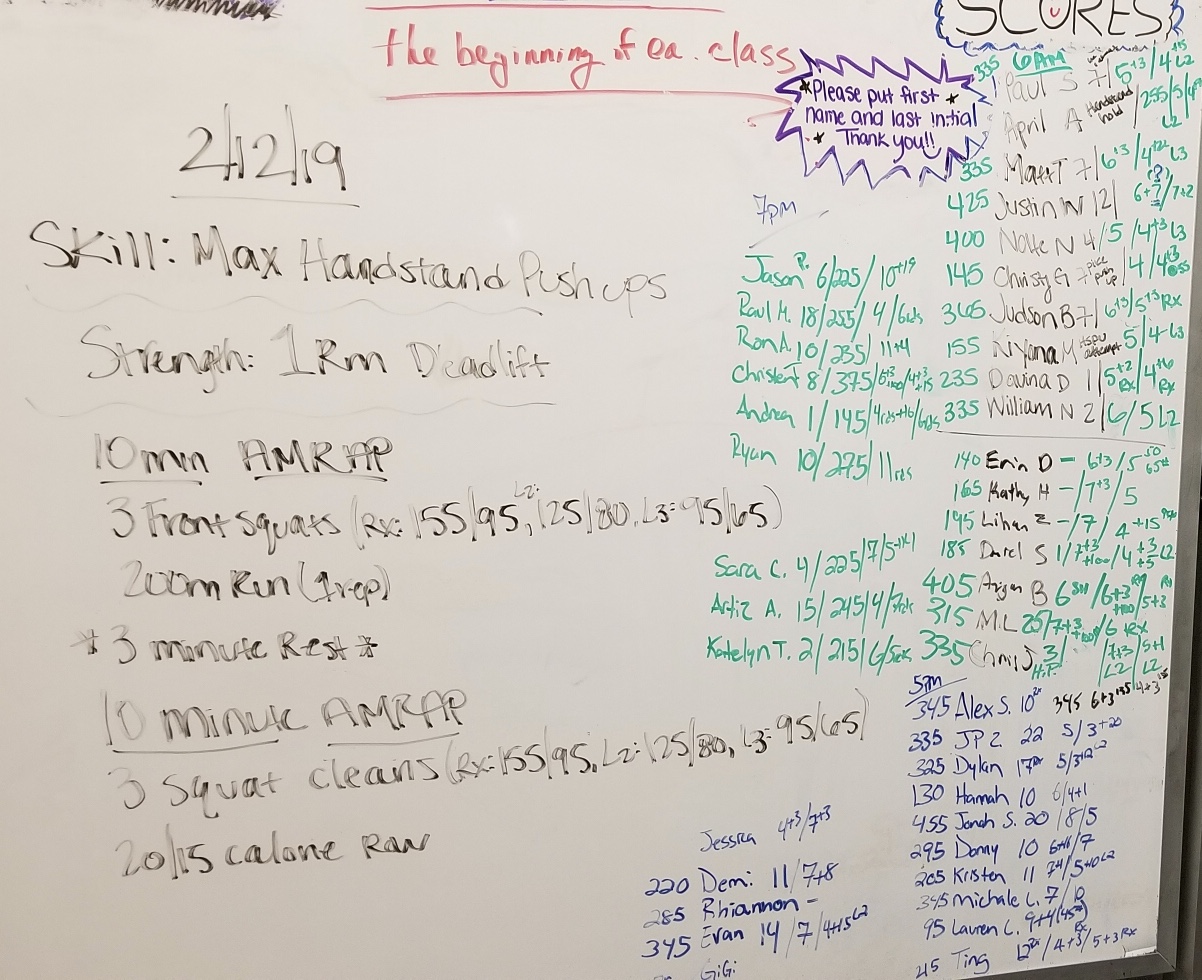 the beginning of ea. class
SCORES
*Please put first *
name and last initial
* Thank you!!
2/12/19
Skill: Max Handstand Pushups
Strength: 1Rm Deadlift
10min AMRAP
3 Front squats (Rx: 155/95, L2: 125/80, L3: 95/65)
200m Run (1rep)
*3 minute Rest*
10 minute AMRAP
3 Squat cleans (Rx: 155/95, L2: 125/80, L3: 95/65)
20/15 calorie Row
7pm
Jason P. 6/225/10+19
Raul M. 18/255/4/6rds
Ron A. 10/235/11+4
8/375
Andrea 1/145/4rds+16/6rds
Ryan 10/275/11
Sara C. 4/225/7/5
Artiz A. 15/245/4/7rds
Katelyn T. 2/215/6/5rds
6AM
335 Paul S 7/5+3/4+15 L2
April A Handstand hold /255/5/4
L2
335 Matt T 7/6+3/4+22 L3
425 Justin W 12/ 6+?/7+2
400 N 4/5/4+3 L3
145 Christy G 7 /4/4+3
365 Judson B 7/6+3/5+3 Rx
155 Kiyana M HSPU attempt 5/4 L3
235 Davina D 1/5+2 Rx/4+6 Rx
335 William N 2/6/5 L2
140 Erin D - 6+3/5 50 65#
165 Kathy H -/7+3/5
195 Z -/7/4+15
185 S 1/7+3 +100/4+3 +5 L2
405 B 6 /6+3 +100/5+3
315 M.L 25/7+3 +100/6 +Rx
335 Chris J. 3/ /7+3/5+1
L2/L2
5pm
345 Alex S. 10 345 6+3 /4+3
335 JP Z. 22 5/3+20
325 Dylan 17 5/3+12 L2
130 Hannah 10 6/4+1
455 Jonah S. 20 /8/5
295 Danny 10 /7
205 Kristen 11 /5+10 L2
345 Michale L. 7/10
95 Lauren C. 9+4 (45#)
Ting 12 /4+3/5+3 Rx
Jessica 4+3/7+3
220 Demi 11/7+8
285 Rhiannon -
345 Evan 14/7/4+15 L2
GiGi